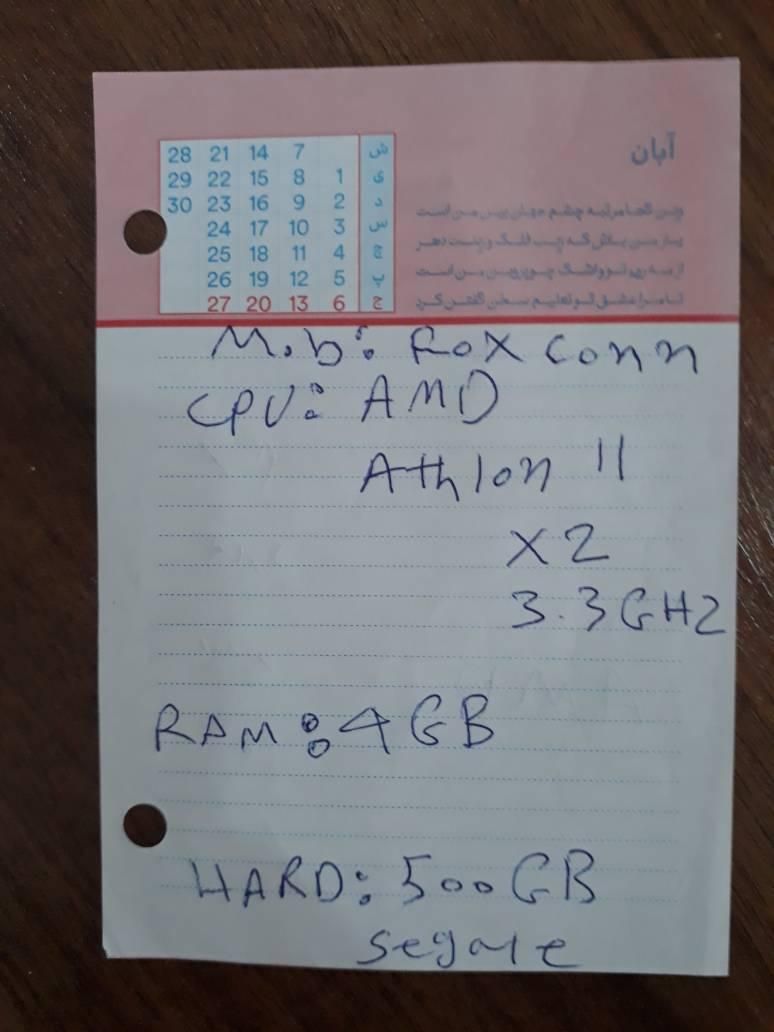 آبان
ش 7 14 21 28
ی 1 8 15 22 29
د 2 9 16 23 30
س 3 10 17 24
چ 4 11 18 25
پ 5 12 19 26
ج 6 13 20 27
M.b: Foxconn
CPU: AMD
Athlon II
X2
3.3 GHZ
RAM: 4 GB
HARD: 500 GB
Segate